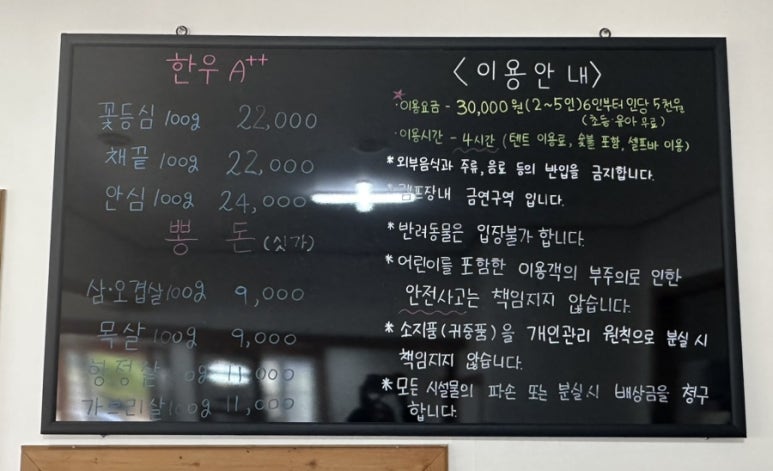 한우 A++
꽃등심 100g 22,000
채끝 100g 22,000
안심 100g 24,000
뽕 돈 (싯가)
삼·오겹살 100g 9,000
목살 100g 9,000
항정살 0g 11,000
가브리살 100g 11,000
<이용안내>
*·이용요금 - 30,000원 (2~5인) 6인부터 인당 5천원
(초등·유아 무료)
·이용시간 - 4시간 (텐트 이용료, 숯불 포함, 셀프바 이용)
*외부음식과 주류, 음료 등의 반입을 금지합니다.
캠프장내 금연구역 입니다.
*반려동물은 입장불가 합니다.
*어린이를 포함한 이용객의 부주의로 인한
안전사고는 책임지지 않습니다.
*소지품(귀중품)을 개인관리 원칙으로 분실 시
책임지지 않습니다.
*모든 시설물의 파손 또는 분실시 배상금을 청구
합니다.